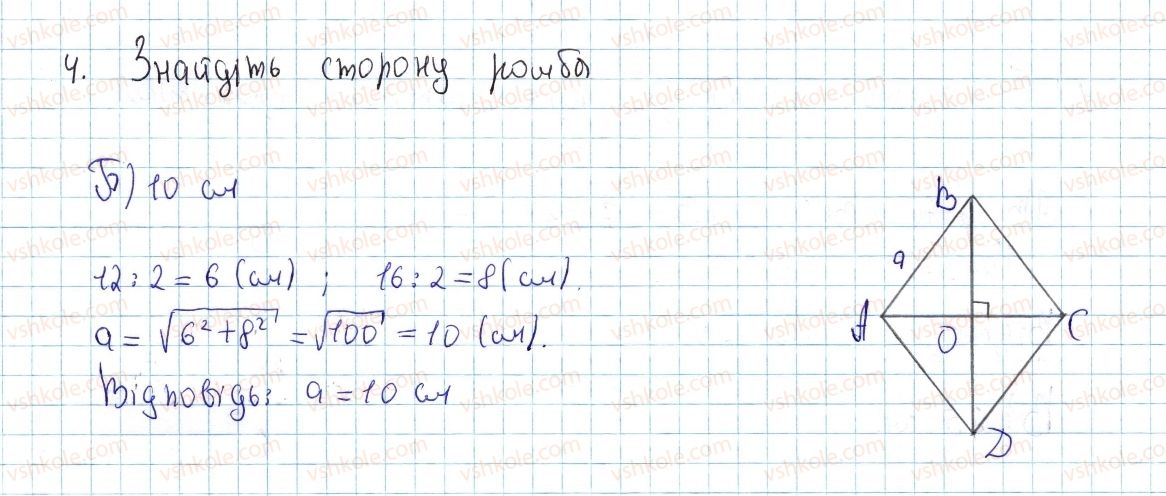 4. Знайдіть сторону ромба
Б) 10 см
12 : 2 = 6 (см) ; 16 : 2 = 8 (см).
a = √6² + 8² = √100 = 10 (см).
Відповідь: a = 10 см
B
a
A
O
C
D
vshkole.com